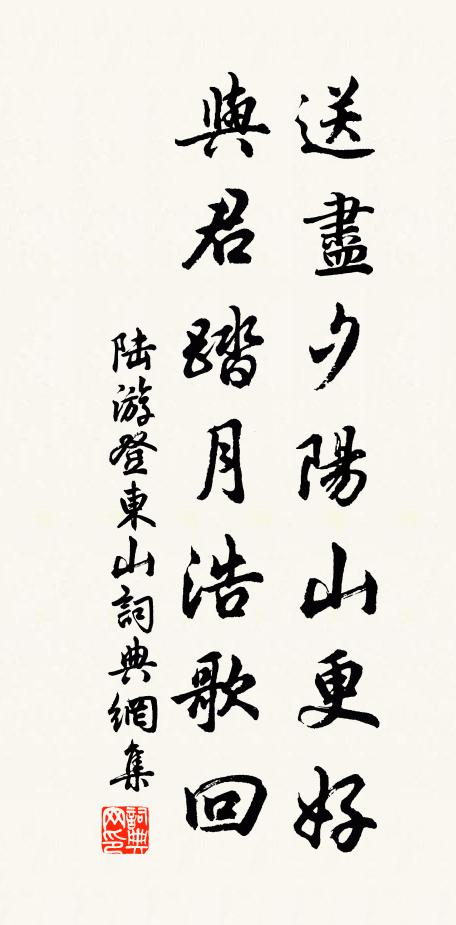 送盡夕陽山更好
與君踏月浩歌回
陸游登東山詞典網集
詞典網印